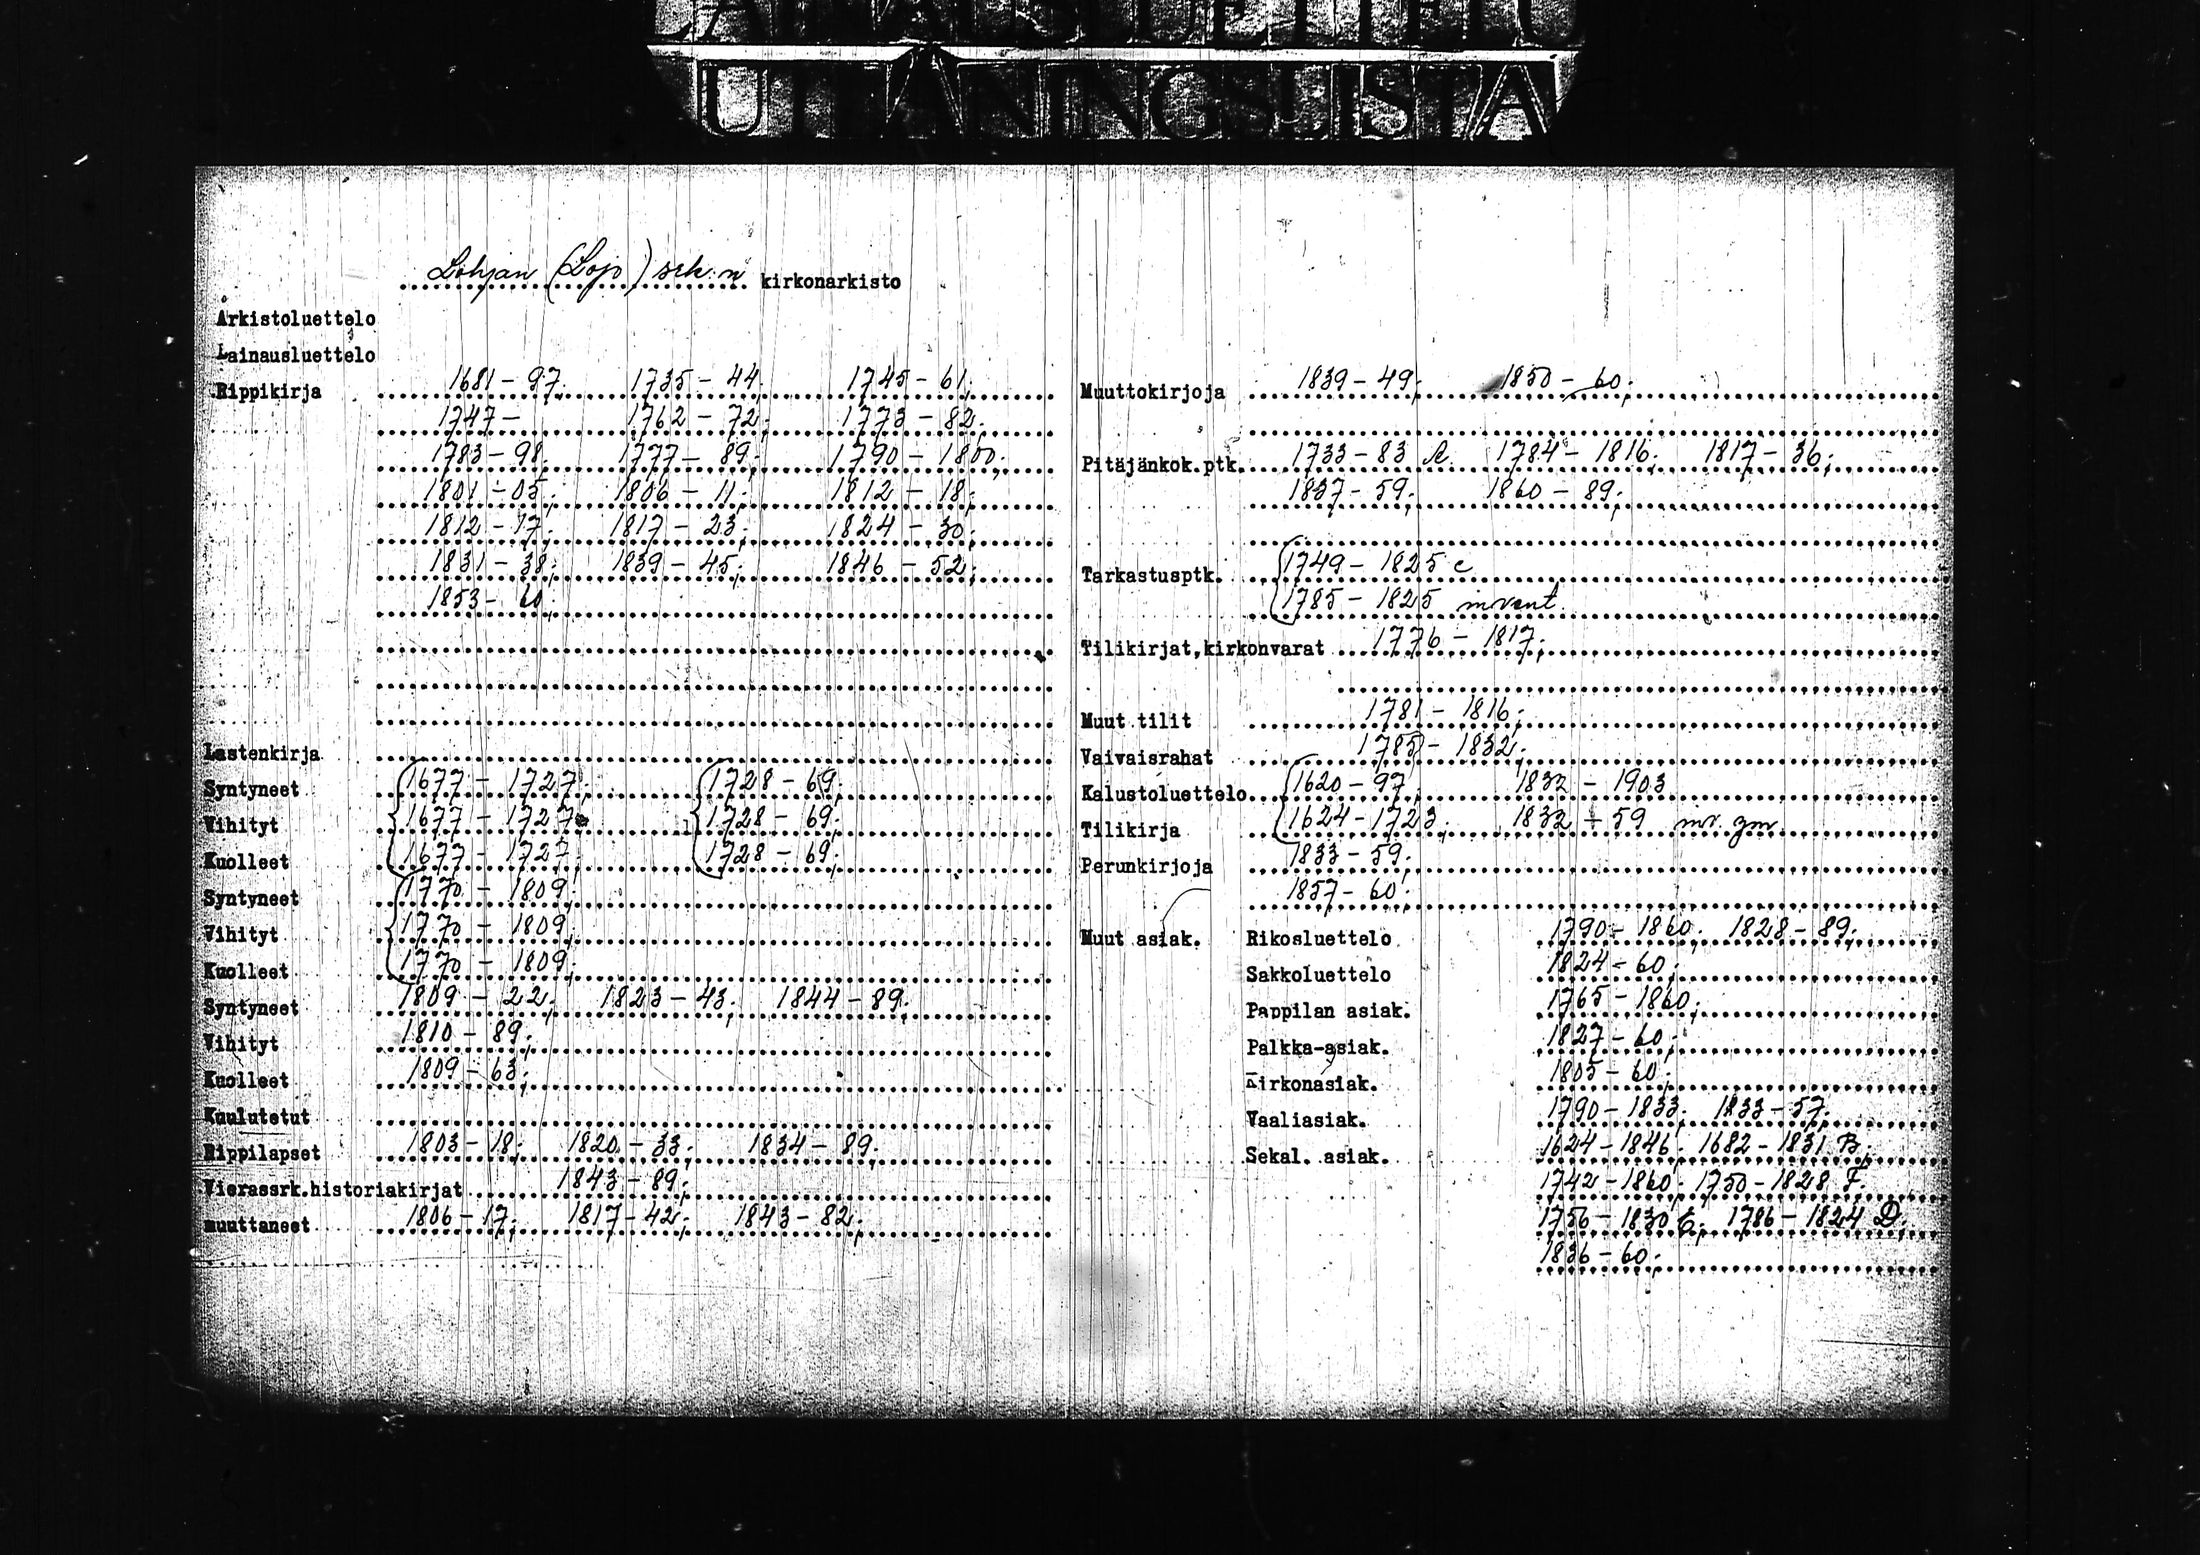 LAINAUSLUETTELO
UTLÅNINGSLISTA
Lohjan (Lojo) srk:n kirkonarkisto
Arkistoluettelo
Lainausluettelo
Rippikirja 1681-97; 1735-44; 1745-61;
1747- 1762-72; 1773-82;
1783-98; 1777-89; 1790-1800;
1801-05; 1806-11; 1812-18;
1812-17; 1817-23; 1824-30;
1831-38; 1839-45; 1846-52;
1853-60;
Lastenkirja
Syntyneet 1677-1727; 1728-69;
Vihityt 1677-1727; 1728-69;
Kuolleet 1677-1727; 1728-69;
Syntyneet 1770-1809;
Vihityt 1770-1809;
Kuolleet 1770-1809;
Syntyneet 1809-22; 1823-43; 1844-89;
Vihityt 1810-89;
Kuolleet 1809-63;
Kuulutetut
Rippilapset 1803-18; 1820-33; 1834-89;
Vierassrk.historiakirjat 1843-89;
muuttaneet 1806-17; 1817-42; 1843-82;
Muuttokirjoja 1839-49; 1850-60;
Pitäjänkok.ptk. 1733-83 A. 1784-1816; 1817-36;
1837-59; 1860-89;
Tarkastusptk. 1749-1825 c
1785-1825 invent.
Tilikirjat,kirkonvarat 1776-1817;
Muut tilit 1781-1816;
Vaivaisrahat 1785-1832;
Kalustoluettelo 1620-97; 1832-1903
Tilikirja 1624-1723; 1832-59
Perunkirjoja 1833-59;
1857-60;
Muut asiak. Rikosluettelo 1790-1860; 1828-89;
Sakkoluettelo 1824-60;
Pappilan asiak. 1765-1860;
Palkka-asiak. 1827-60;
Kirkonasiak. 1805-60;
Vaaliasiak. 1790-1833; 1833-57;
Sekal. asiak. 1624-1846; 1682-1831 B;
1742-1860; 1750-1828 F.
1756-1830 E; 1786-1824 D;
1836-60;